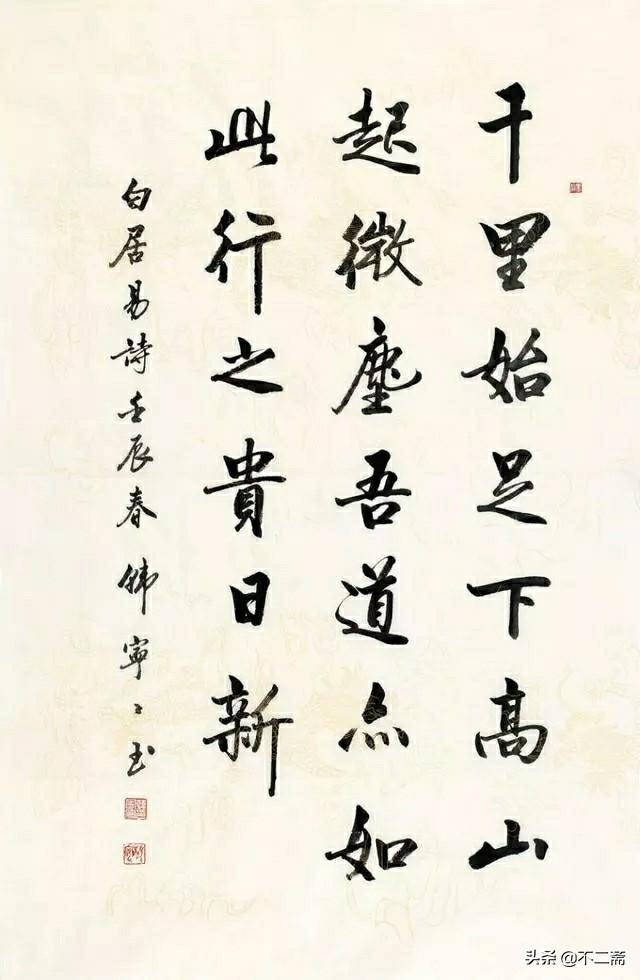 千里始足下高山
起微塵吾道亦如
此行之貴日新
白居易詩壬辰春 寧〻
头条 @不二斋